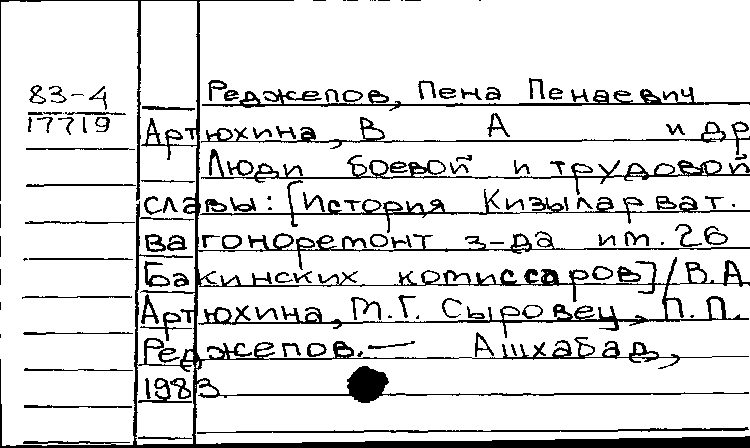 83-4
17719
Реджепов, Пена Пенаевич
Артюхина, В А и др
Люди боевой и трудовой
славы: [История Кизыларват.
вагоноремонт з-да им. 26
Бакинских комиссаров] / В.А
Артюхина, М.Г. Сыровец, П.П.
Реджепов. — Ашхабад,
1983.